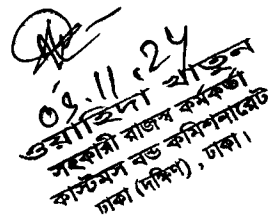 ০৭.১১.২৪
ওয়াহিদা খাতুন
সহকারী রাজস্ব কর্মকর্তা
কাস্টমস বন্ড কমিশনারেট
ঢাকা (দক্ষিণ), ঢাকা।